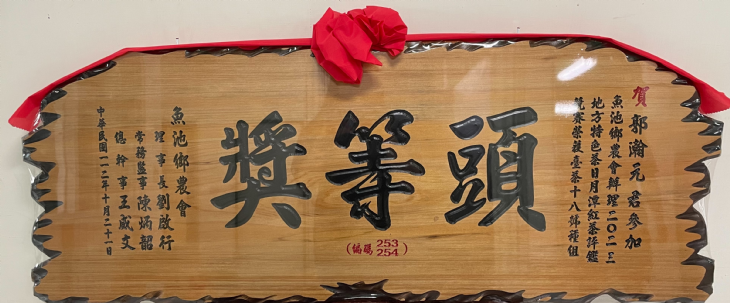 賀 郭瀚元 君參加
魚池鄉農會辦理二〇二三
地方特色茶日月潭紅茶評鑑
競賽榮獲臺茶十八號種組
頭等獎
(編碼 253 254)
魚池鄉農會
理事長劉啟行
常務監事陳炳韶
總幹事王威文
中華民國一一二年十月二十一日